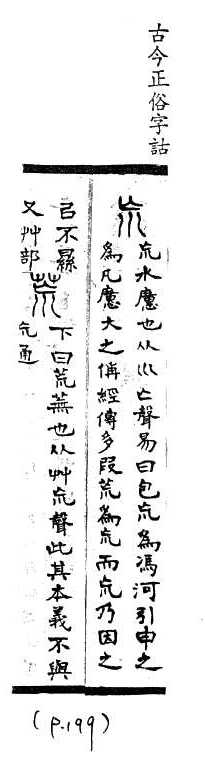 古今正俗字詁
巟
巟水廣也从川亡聲易曰包巟為馮河引申之
為凡廣大之偁經傳多叚荒為巟而巟乃因之
㠯不顯
又艸部
荒
下曰荒蕪也从艸巟聲此其本義不與
巟通
(p.199)